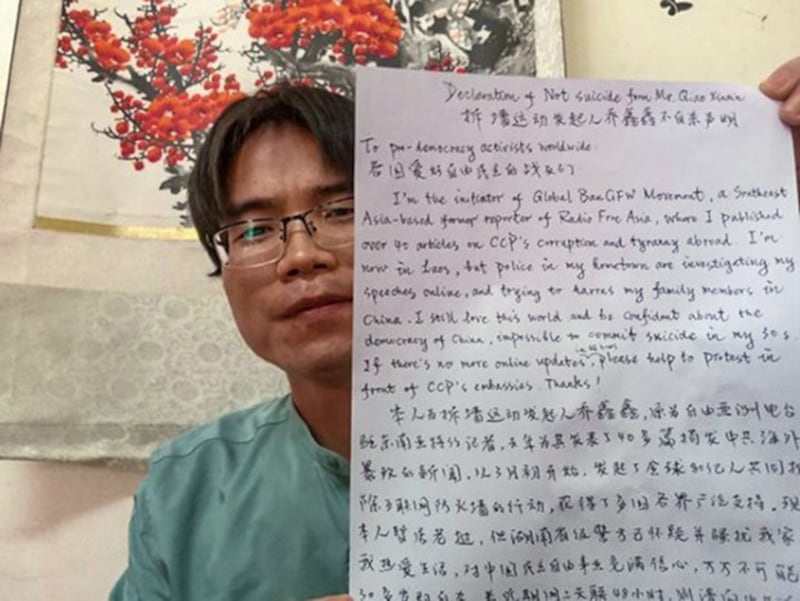 Declaration of Not suicide from Mr. Qiao Xinxin
拆墙运动发起人乔鑫鑫不自杀声明
To pro-democracy activists worldwide:
各国爱好自由民主的战友们
I'm the initiator of Global BanGFW Movement, a Southeast
Asia-based former reporter of Radio Free Asia, where I published
over 40 articles on CCP's corruption and tyranny abroad. I'm
now in Laos, but police in my hometown are investigating my
speeches online, and trying to harass my family members in
China. I still love this world and be confident about the
democracy of China, impossible to commit suicide in my 30s.
If there's no more online updates in 48 hours, please help to protest in
front of CCP's embassies. Thanks!
本人为拆墙运动发起人乔鑫鑫,原为自由亚洲电台
驻东南亚特约记者,去年为其发表了40多篇揭发中共海外
暴政的新闻,从3月初开始,发起了全球和亿人共同拆
除互联网防火墙的行动,获得了多国各界广泛支持。现
本人暂居老挝,但湖南省级警方已怀疑并骚扰我家
我热爱生活,对中国民主自由事业充满信心,万万不可能
30多岁就自杀。若我期间二天联48小时,则请向